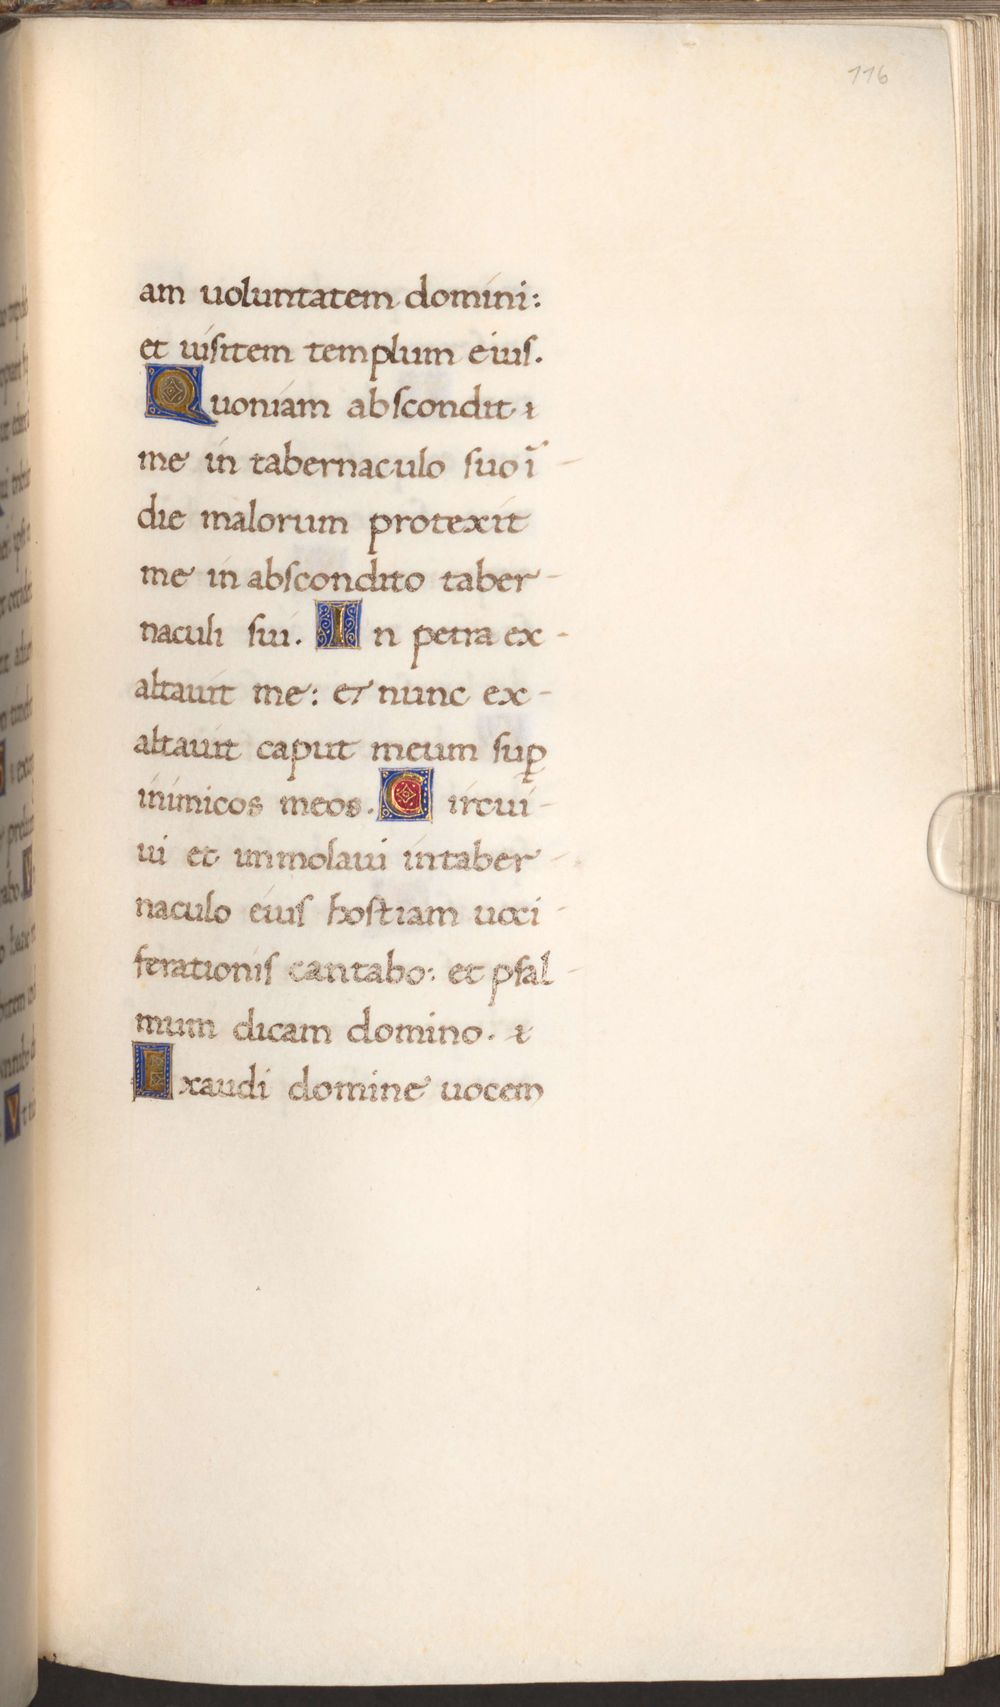 116
am uoluntatem domini:
et uisitem templum eius.
Quoniam abscondit
me in tabernaculo suo ĩ
die malorum protexit
me in abscondito taber-
naculi sui. In petra ex-
altauit me: et nunc ex-
altauit caput meum suꝑ
inimicos meos. Circui-
ui et immolaui in taber-
naculo eius hostiam uoci-
ferationis cantabo: et psal-
mum dicam domino.
Exaudi domine uocem